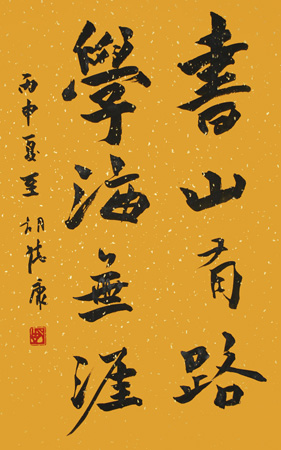 書山有路
學海無涯
丙申夏至 胡德康